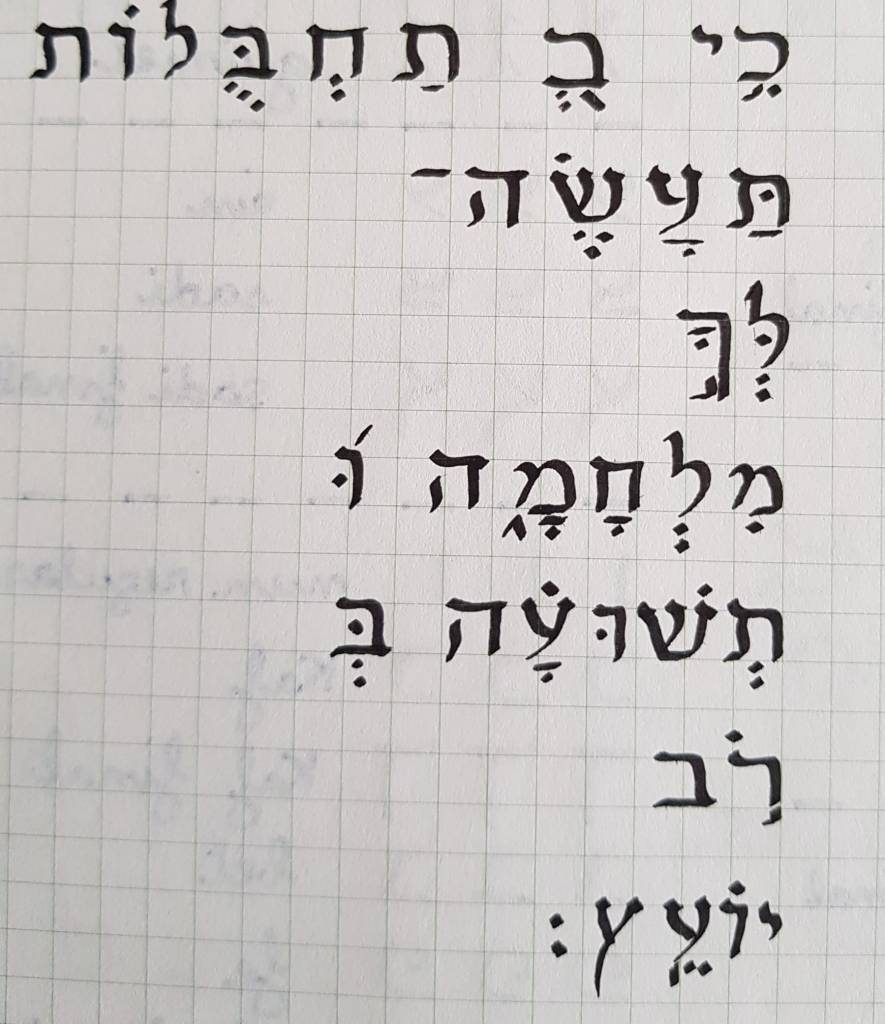 כִּי בְ תַחְבֻּלוֹת
תַּעֲשֶׂה־
לְּךָ
מִלְחָמָ֑ה וּ֝
תְשׁוּעָ֗ה בְּ
רֹב
יוֹעֵץ׃